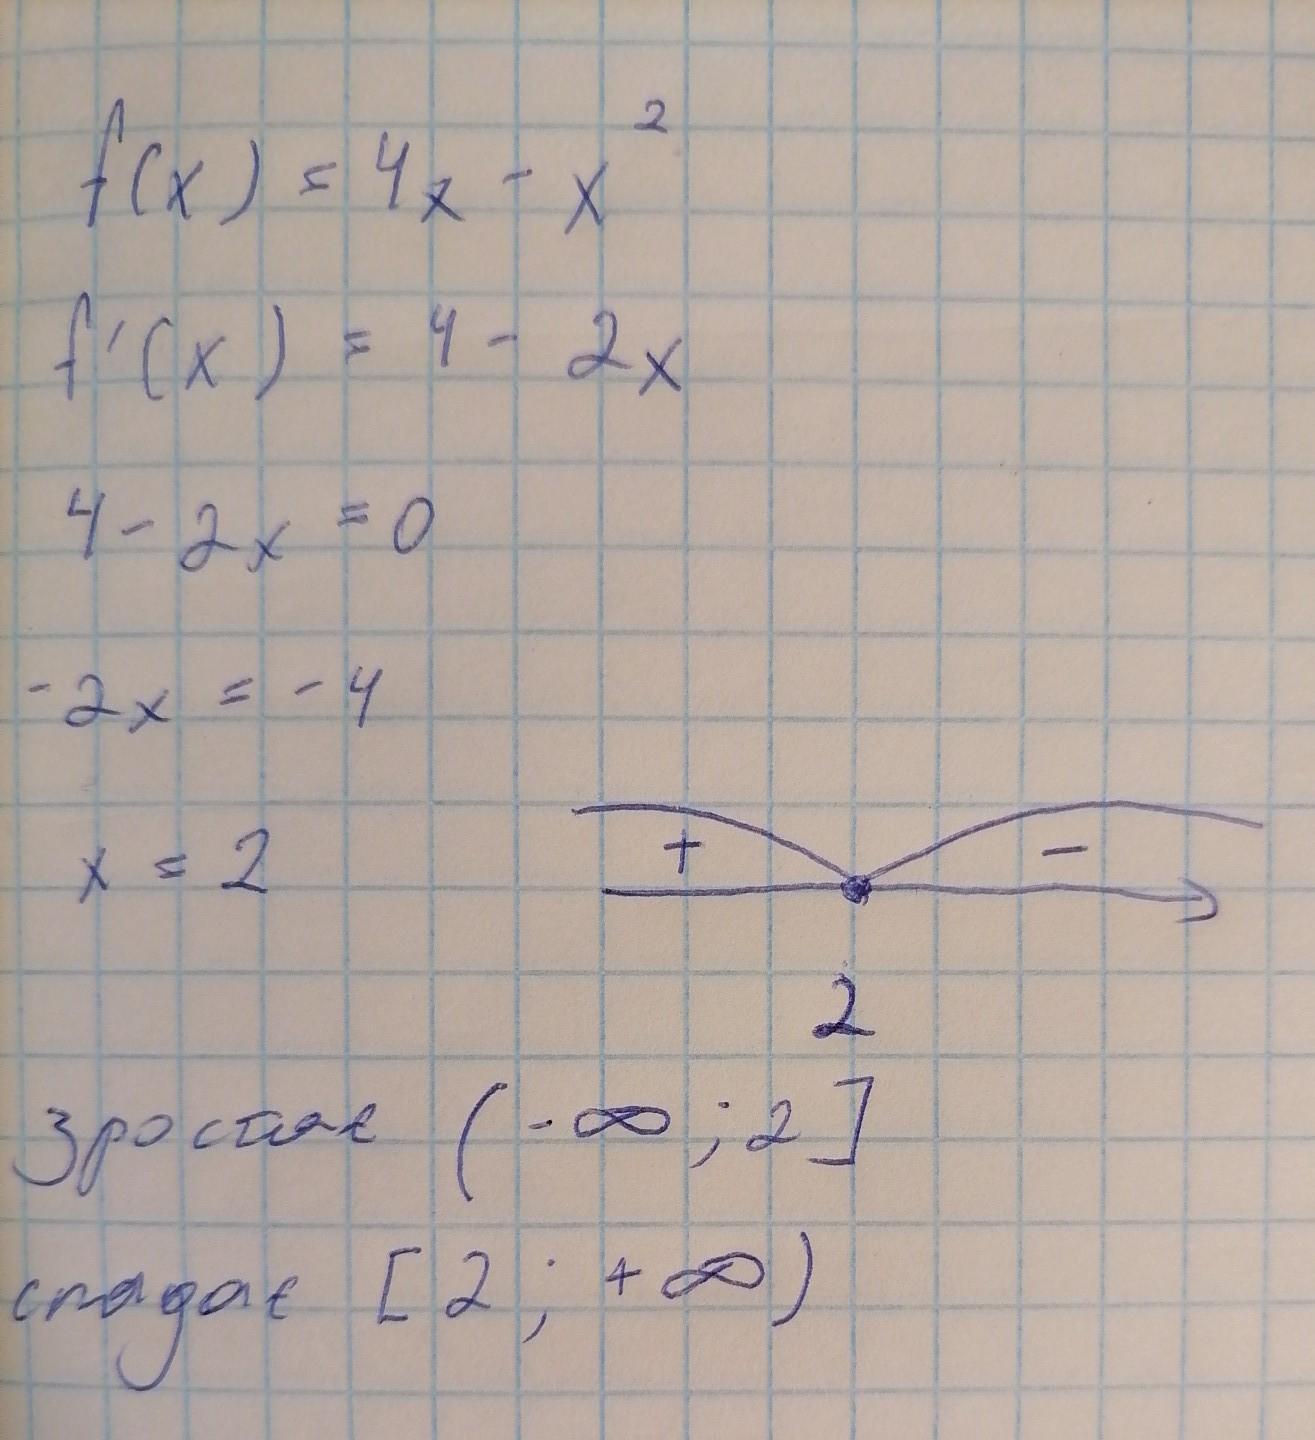 f(x) = 4x - x²
f'(x) = 4 - 2x
4 - 2x = 0
-2x = -4
x = 2
+ -
2
зростає (-∞; 2]
спадає [2; +∞)